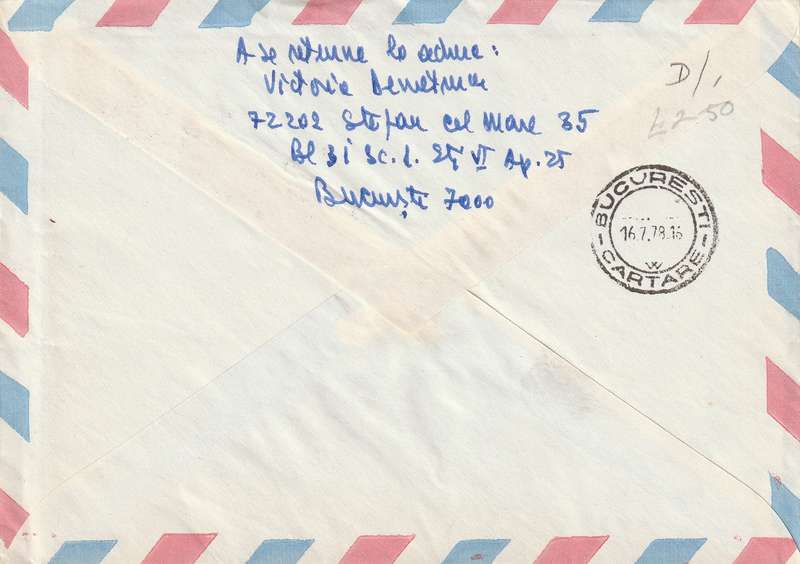 A se returna la adresa:
Victoria Demetrian
72202 Stefan cel Mare 35
Bl 31 Sc. 1. Et. VI Ap. 25
București 7000
D/,
£2-50
BUCUREȘTI
16.7.78.16
W
CARTARE